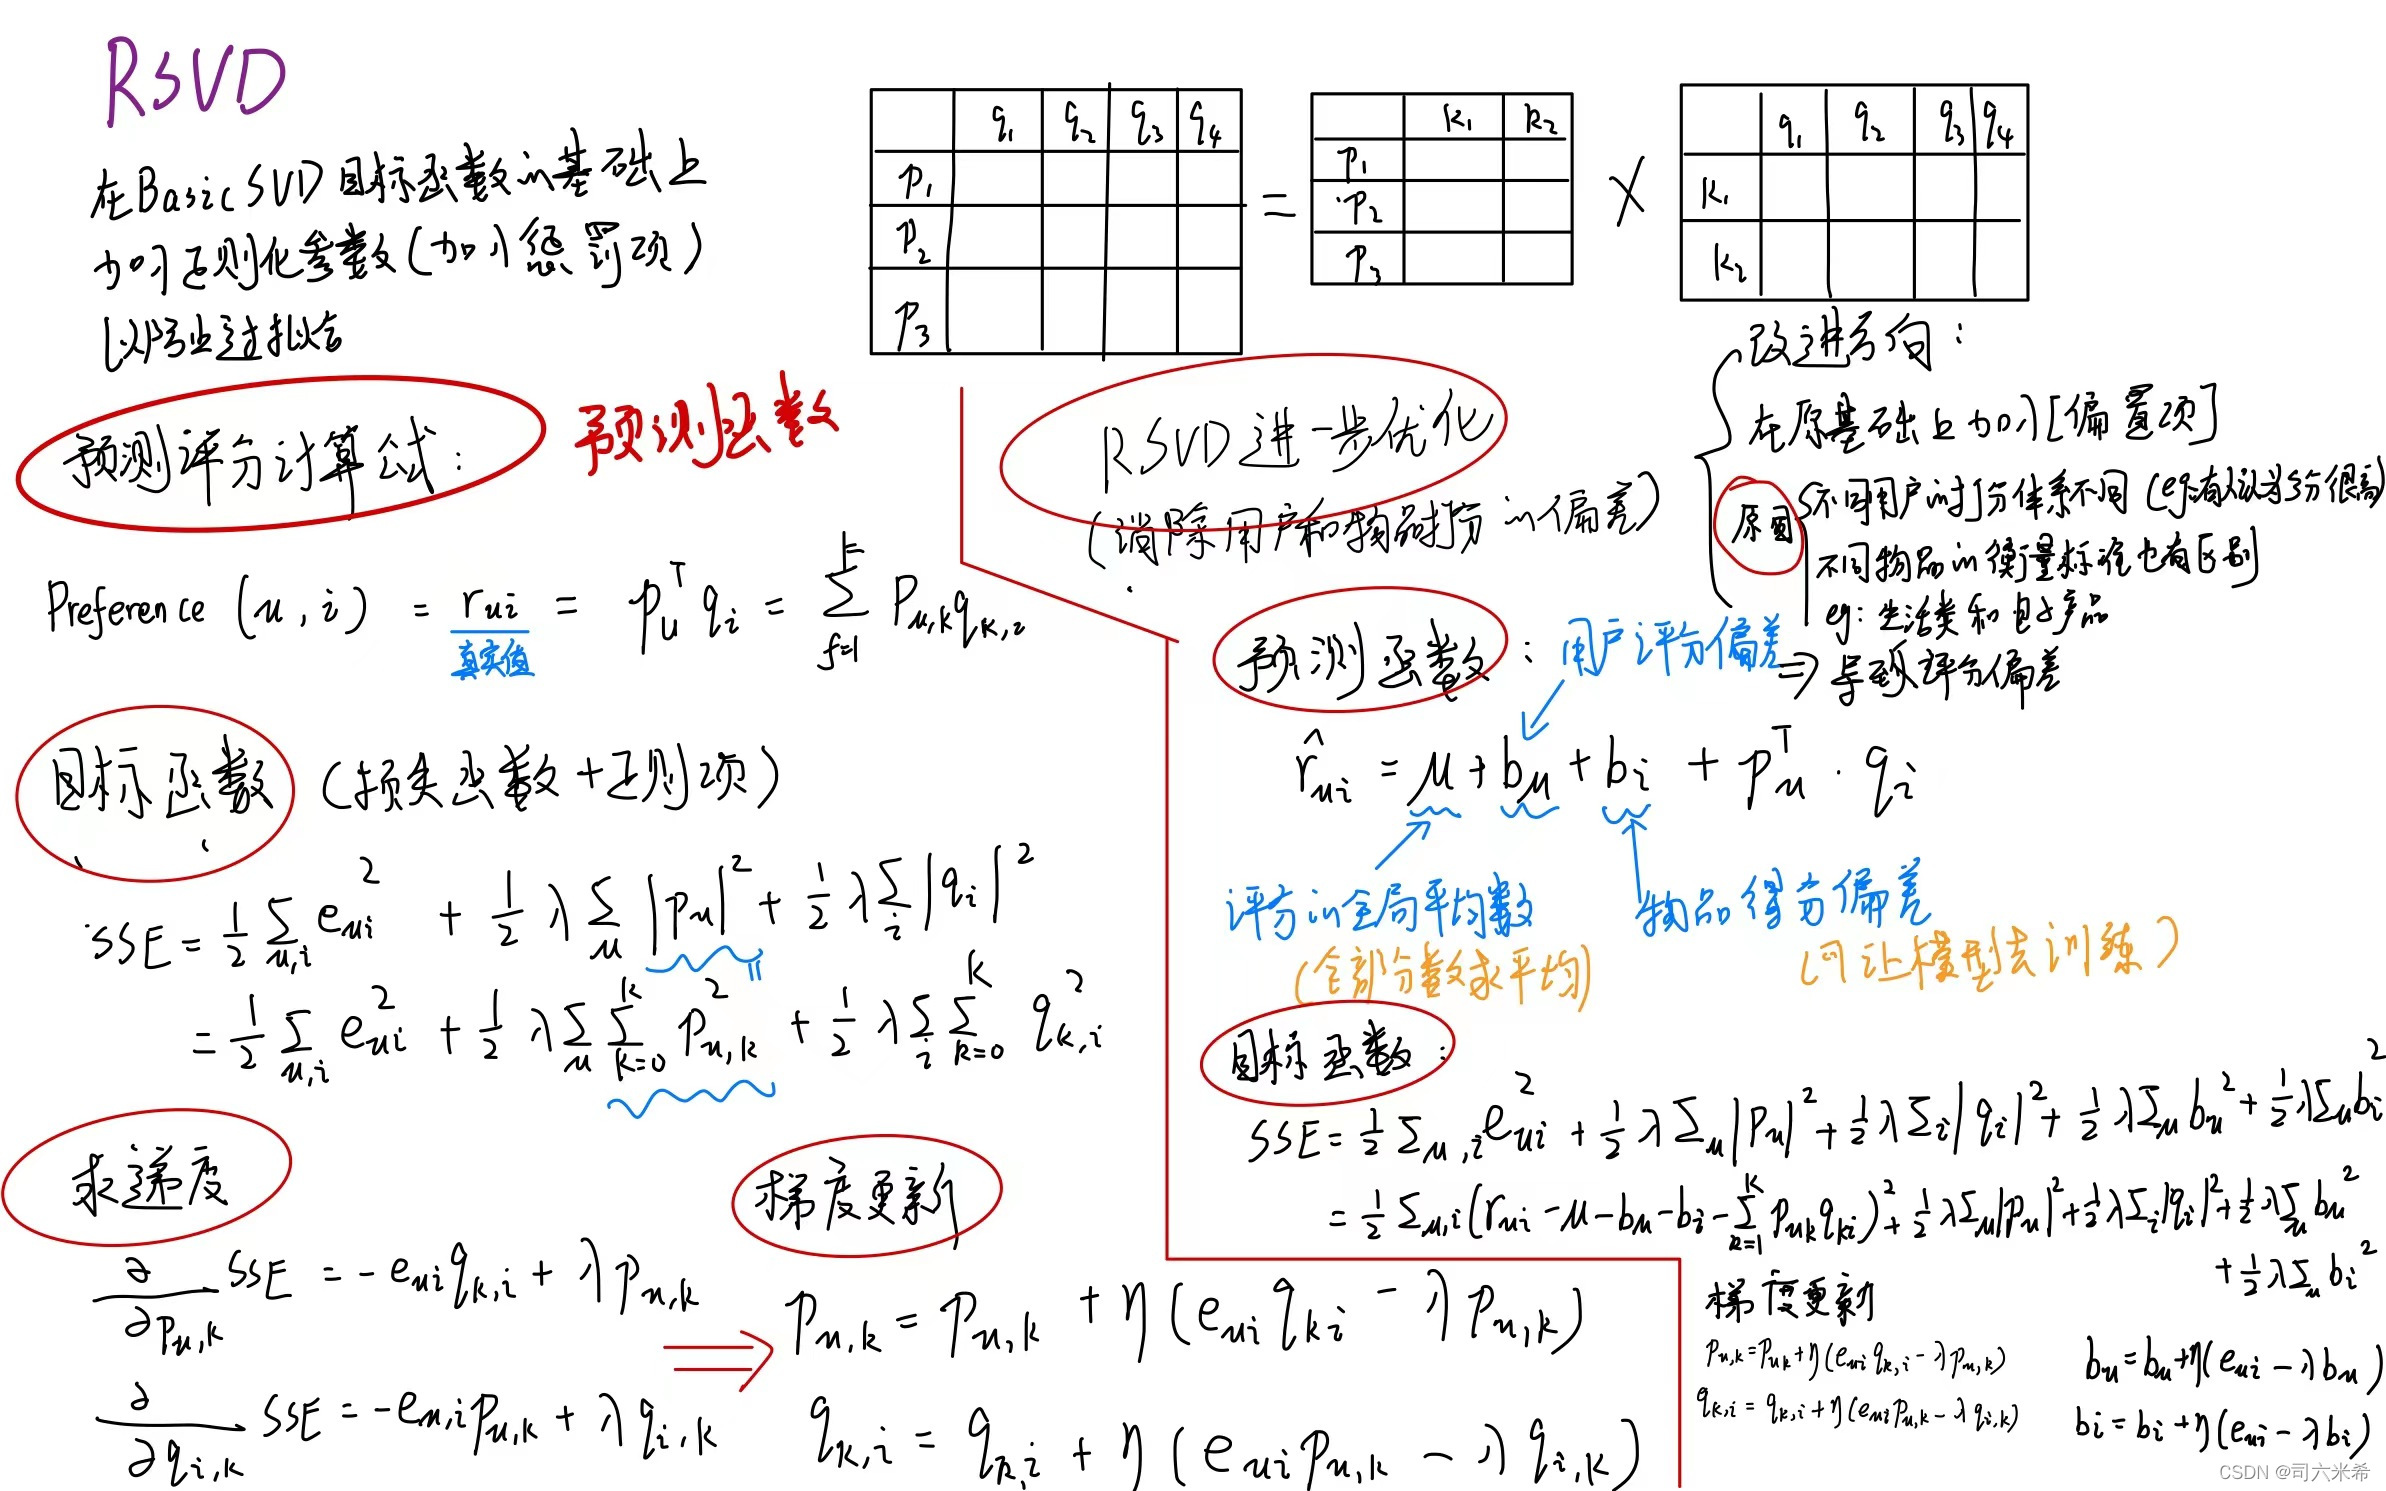 RSVD
在BasicSVD目标函数的基础上
加入正则化参数(加入惩罚项)
以防止过拟合
q₁ q₂ q₃ q₄
p₁
p₂
p₃
=
k₁ k₂
p₁
p₂
p₃
×
q₁ q₂ q₃ q₄
k₁
k₂
预测评分计算公式:
预测函数
Preference (u, i) = r_{ui} = p_u^T q_i = \sum_{f=1}^{F} P_{u,k} q_{k,i}
真实值
目标函数 (损失函数+正则项)
SSE = \frac{1}{2} \sum_{u,i} e_{ui}^2 + \frac{1}{2} λ \sum_u |p_u|^2 + \frac{1}{2} λ \sum_i |q_i|^2
= \frac{1}{2} \sum_{u,i} e_{ui}^2 + \frac{1}{2} λ \sum_u \sum_{k=0}^{K} p_{u,k}^2 + \frac{1}{2} λ \sum_i \sum_{k=0}^{K} q_{k,i}^2
求递度
\frac{∂}{∂p_{u,k}} SSE = -e_{ui} q_{k,i} + λ p_{u,k}
\frac{∂}{∂q_{i,k}} SSE = -e_{u,i} p_{u,k} + λ q_{i,k}
⇒
梯度更新
p_{u,k} = p_{u,k} + η (e_{ui} q_{ki} - λ p_{u,k})
q_{k,i} = q_{k,i} + η (e_{ui} p_{u,k} - λ q_{i,k})
RSVD进一步优化
(消除用户和物品打分的偏差)
改进方向:
在原基础上加入[偏置项]
原因
不同用户的打分体系不同(eg:有人认为3分很高)
不同物品的衡量标准也有区别
eg: 生活类和电子产品
⇒ 导致评分偏差
预测函数:
用户评分偏差
\hat{r}_{ui} = μ + b_u + b_i + p_u^T · q_i
评分的全局平均数
(全部分数求平均)
物品得分偏差
(可让模型去训练)
目标函数:
SSE = \frac{1}{2} Σ_{u,i} e_{ui}^2 + \frac{1}{2} λ Σ_u |p_u|^2 + \frac{1}{2} λ Σ_i |q_i|^2 + \frac{1}{2} λ Σ_u b_u^2 + \frac{1}{2} λ Σ_u b_i^2
= \frac{1}{2} Σ_{u,i} (r_{ui} - μ - b_u - b_i - \sum_{k=1}^{K} p_{uk} q_{ki})^2 + \frac{1}{2} λ Σ_u |p_u|^2 + \frac{1}{2} λ Σ_i |q_i|^2 + \frac{1}{2} λ Σ_u b_u^2
+ \frac{1}{2} λ Σ_u b_i^2
梯度更新
p_{u,k} = p_{uk} + η (e_{ui} q_{k,i} - λ p_{u,k})
q_{k,i} = q_{k,i} + η (e_{ui} p_{u,k} - λ q_{i,k})
b_u = b_u + η (e_{ui} - λ b_u)
b_i = b_i + η (e_{ui} - λ b_i)
CSDN @司六米希